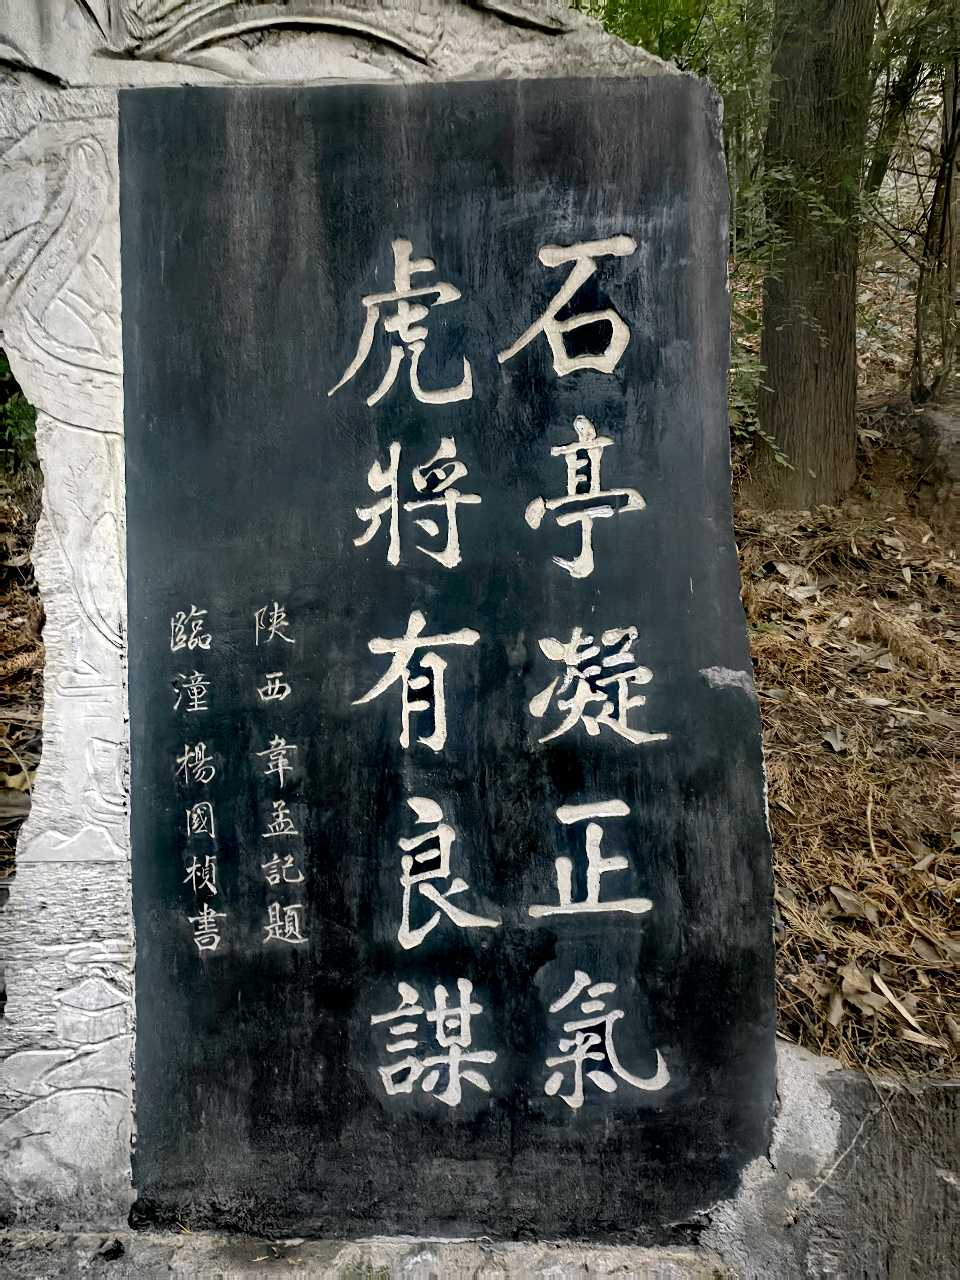 石亭凝正氣
虎將有良謀
陝西韋孟記題
臨潼楊國楨書